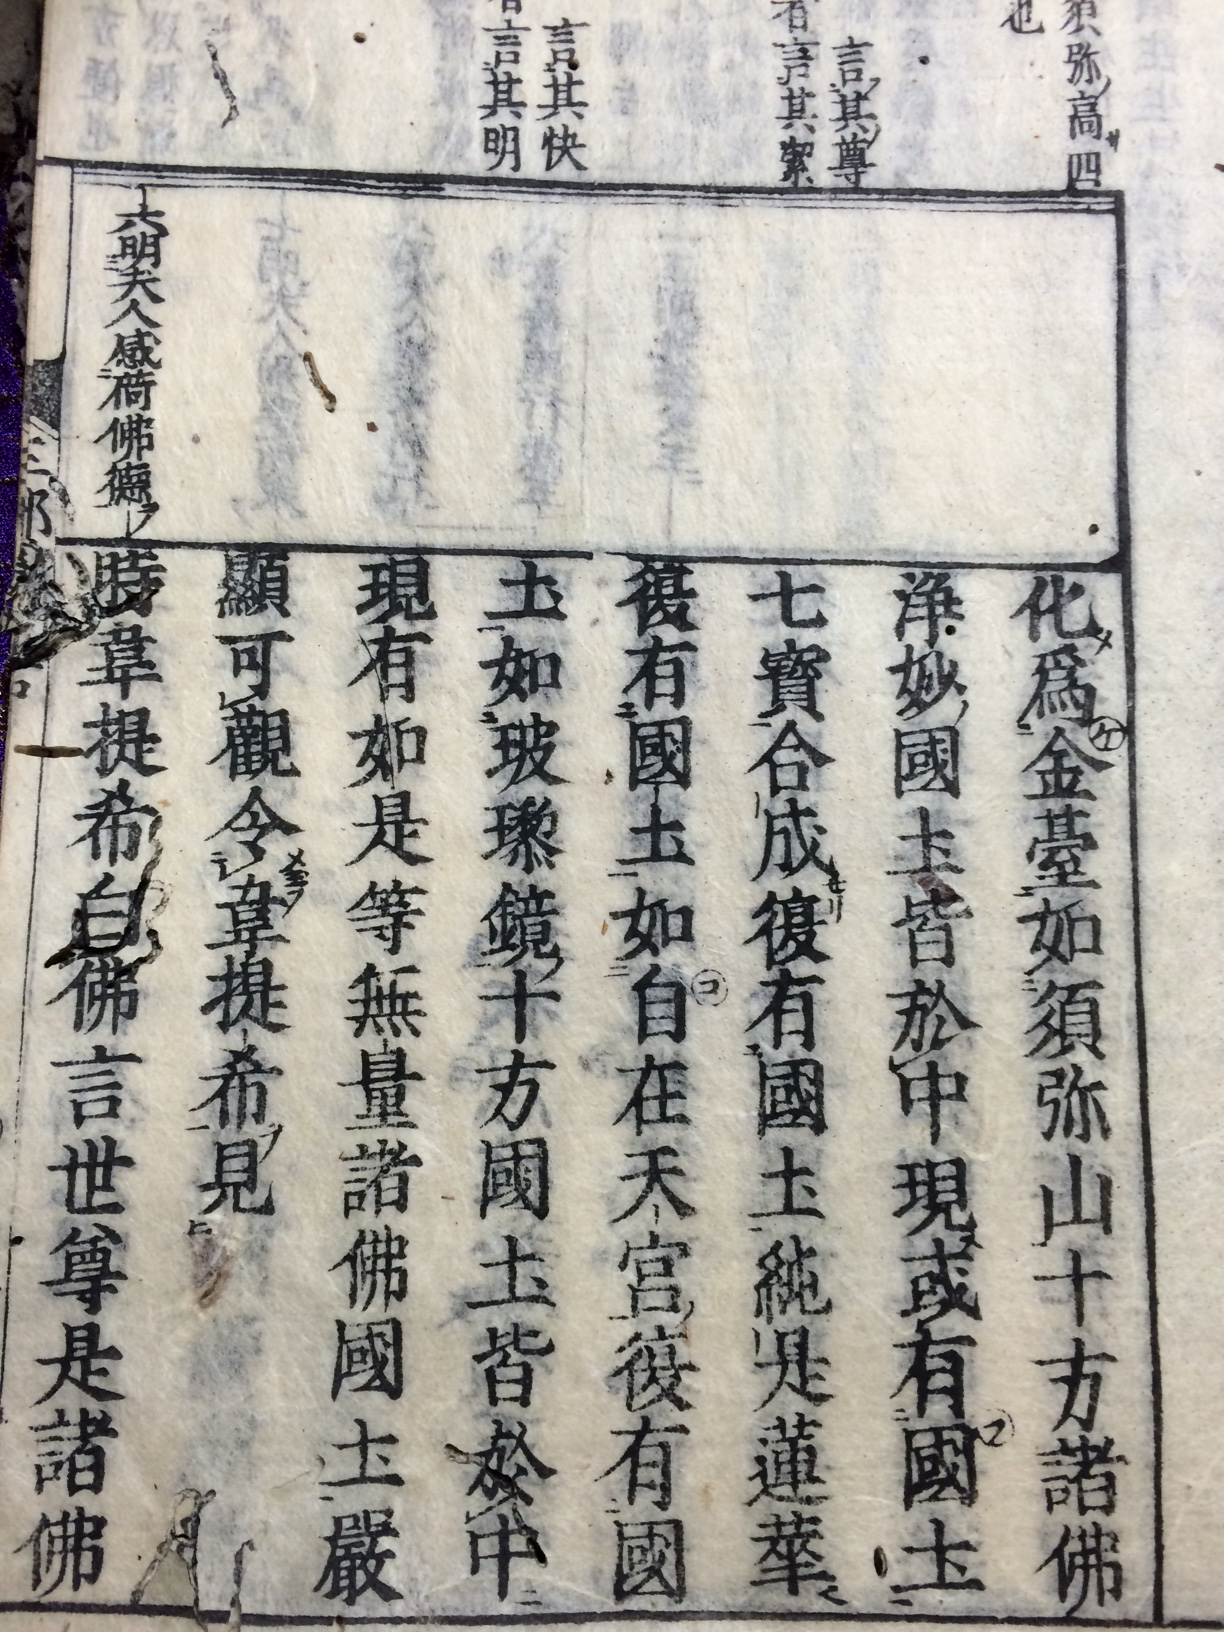 須弥高四
也
言其尊
者言其潔
言其快
者言其明
化為金臺如須弥山十方諸佛
浄妙國土皆於中現或有國土
七寳合成復有國土純是蓮華
復有國土如自在天宮復有國
土如玻瓈鏡十方國土皆於中
現有如是等無量諸佛國土嚴
顯可觀令韋提希見
六明夫人感荷佛德
時韋提希白佛言世尊是諸佛